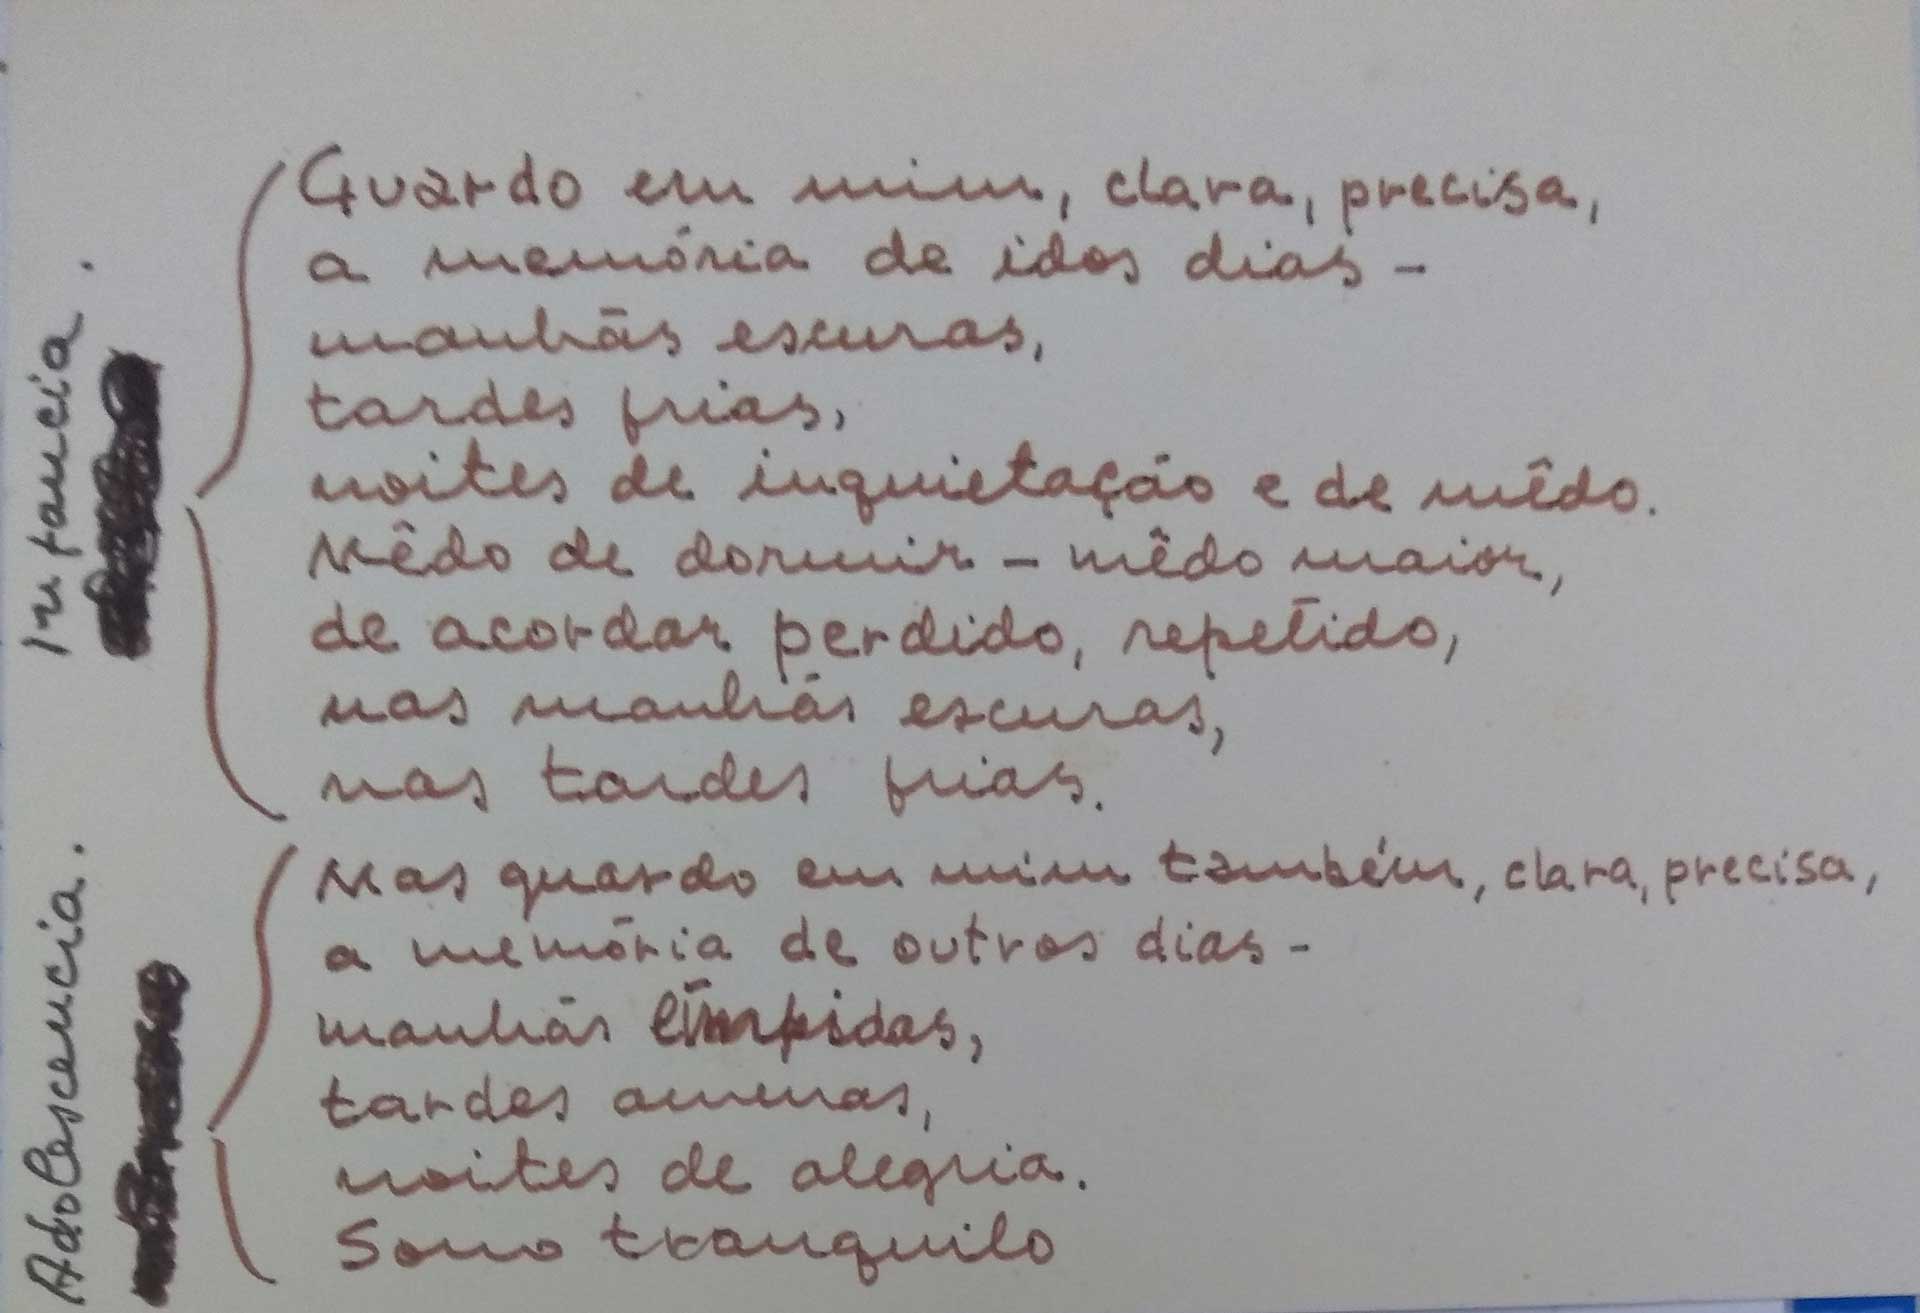 Infancia.
Guardo em mim, clara, precisa,
a memória de idos dias -
manhãs escuras,
tardes frias,
noites de inquietação e de mêdo.
Mêdo de dormir - mêdo maior,
de acordar perdido, repetido,
nas manhãs escuras,
nas tardes frias.
Adolescencia.
Mas guardo em mim também, clara, precisa,
a memória de outros dias -
manhãs límpidas,
tardes amenas,
noites de alegria.
Sono tranquilo